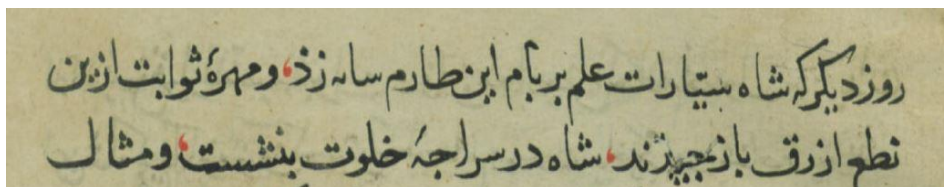 روز دیگر که شاه سیّارات علم بر بام این طارم سایه زذ، و مهرهٔ ثوابت ازین
نطع ازرق باز چیذند، شاه در سراچهٔ خلوت بنشست، و مثال